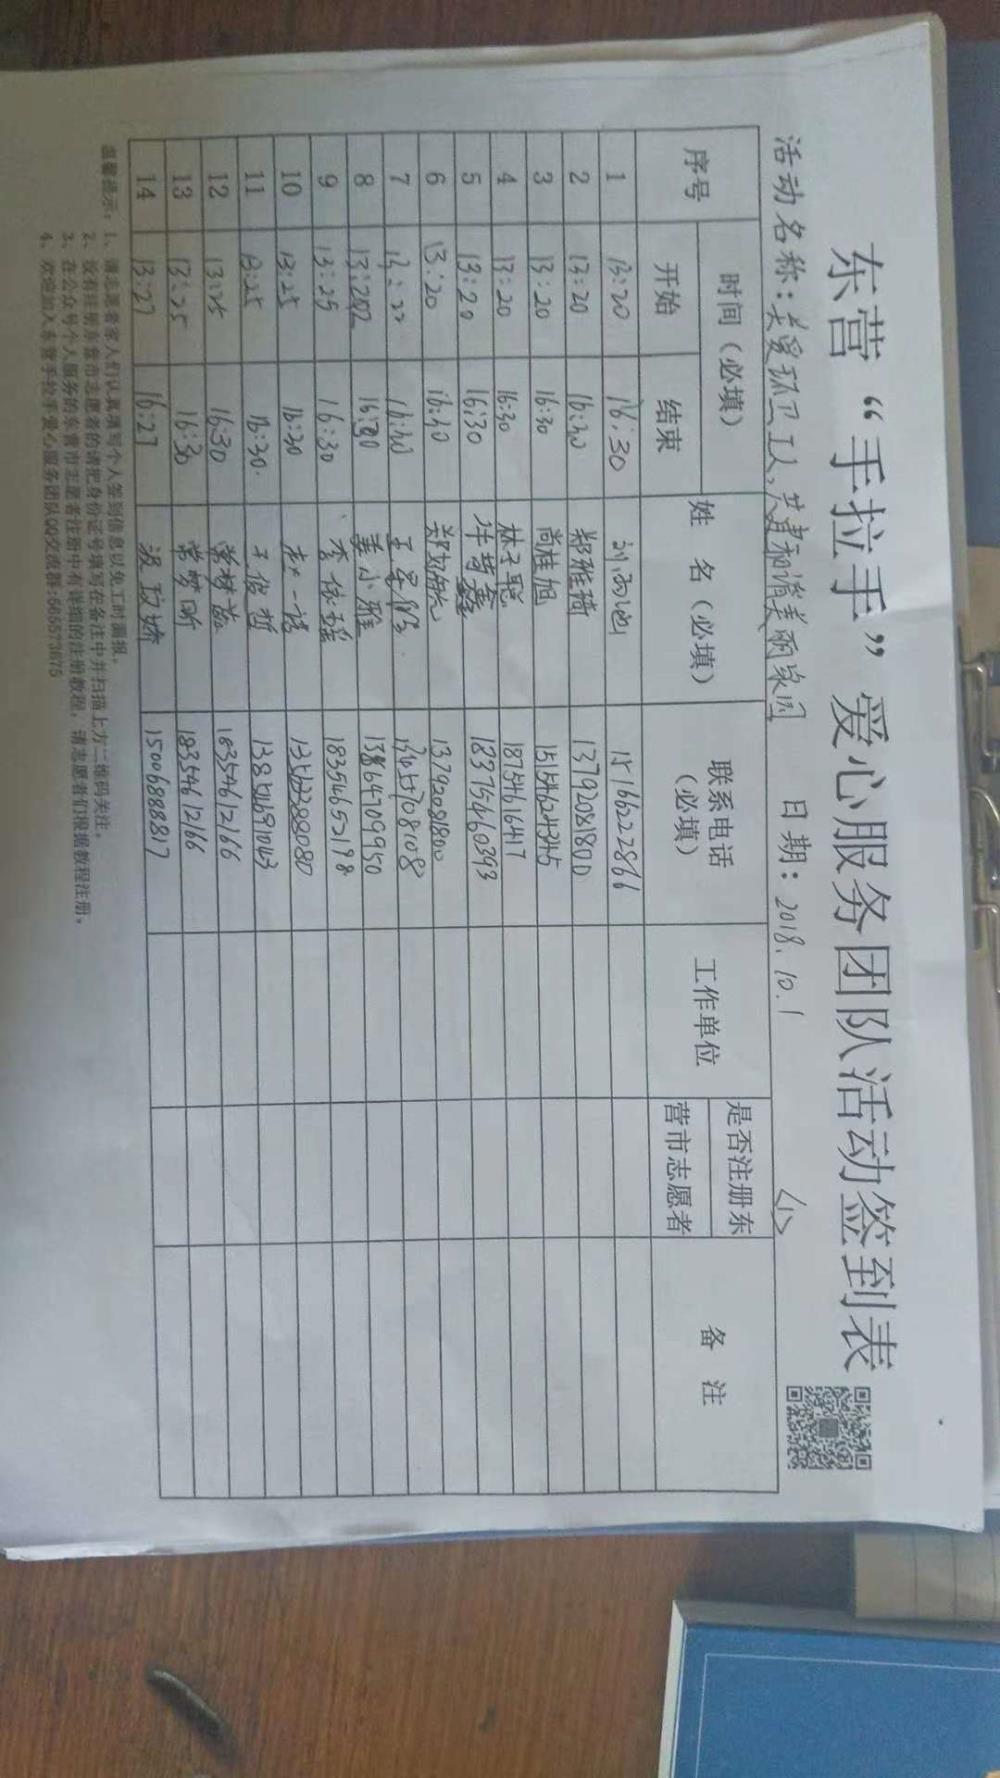 东营“手拉手”爱心服务团队活动签到表
活动名称：关爱环卫工人，共建和谐美丽家园 日期：2018.10.1 <1>
序号 时间（必填） 姓 名（必填） 联系电话（必填） 工作单位 是否注册东营市志愿者 备 注
开始 结束
1 13:20 16:30 15166222866
2 13:20 16:30 郑雅琦 13792081800
3 13:20 16:30 尚桂旭 15154624345
4 13:20 16:30 林子聪 18754616417
5 13:20 16:30 18375460393
6 13:20 16:30 13792081800
7 13:22 16:30 13455708108
8 16:30 姜小雅 13864709950
9 13:25 16:30 李依瑶 18354652198
10 13:25 16:30 13562288080
11 13:25 16:30 王俊哲 13854691043
12 13:25 16:30 18354612166
13 13:25 16:30 常梦昕 18354612166
14 13:27 16:27 15006888817
温馨提示：1、请志愿者家人们认真填写个人签到信息以免工时漏报。
2、没有注册东营市志愿者的请把身份证号填写在备注中并扫描上方二维码关注。
3、在公众号个人服务的东营市志愿者注册中有详细的注册教程，请志愿者们根据教程注册。
4、欢迎加入东营手拉手爱心服务团队QQ交流群:565573675